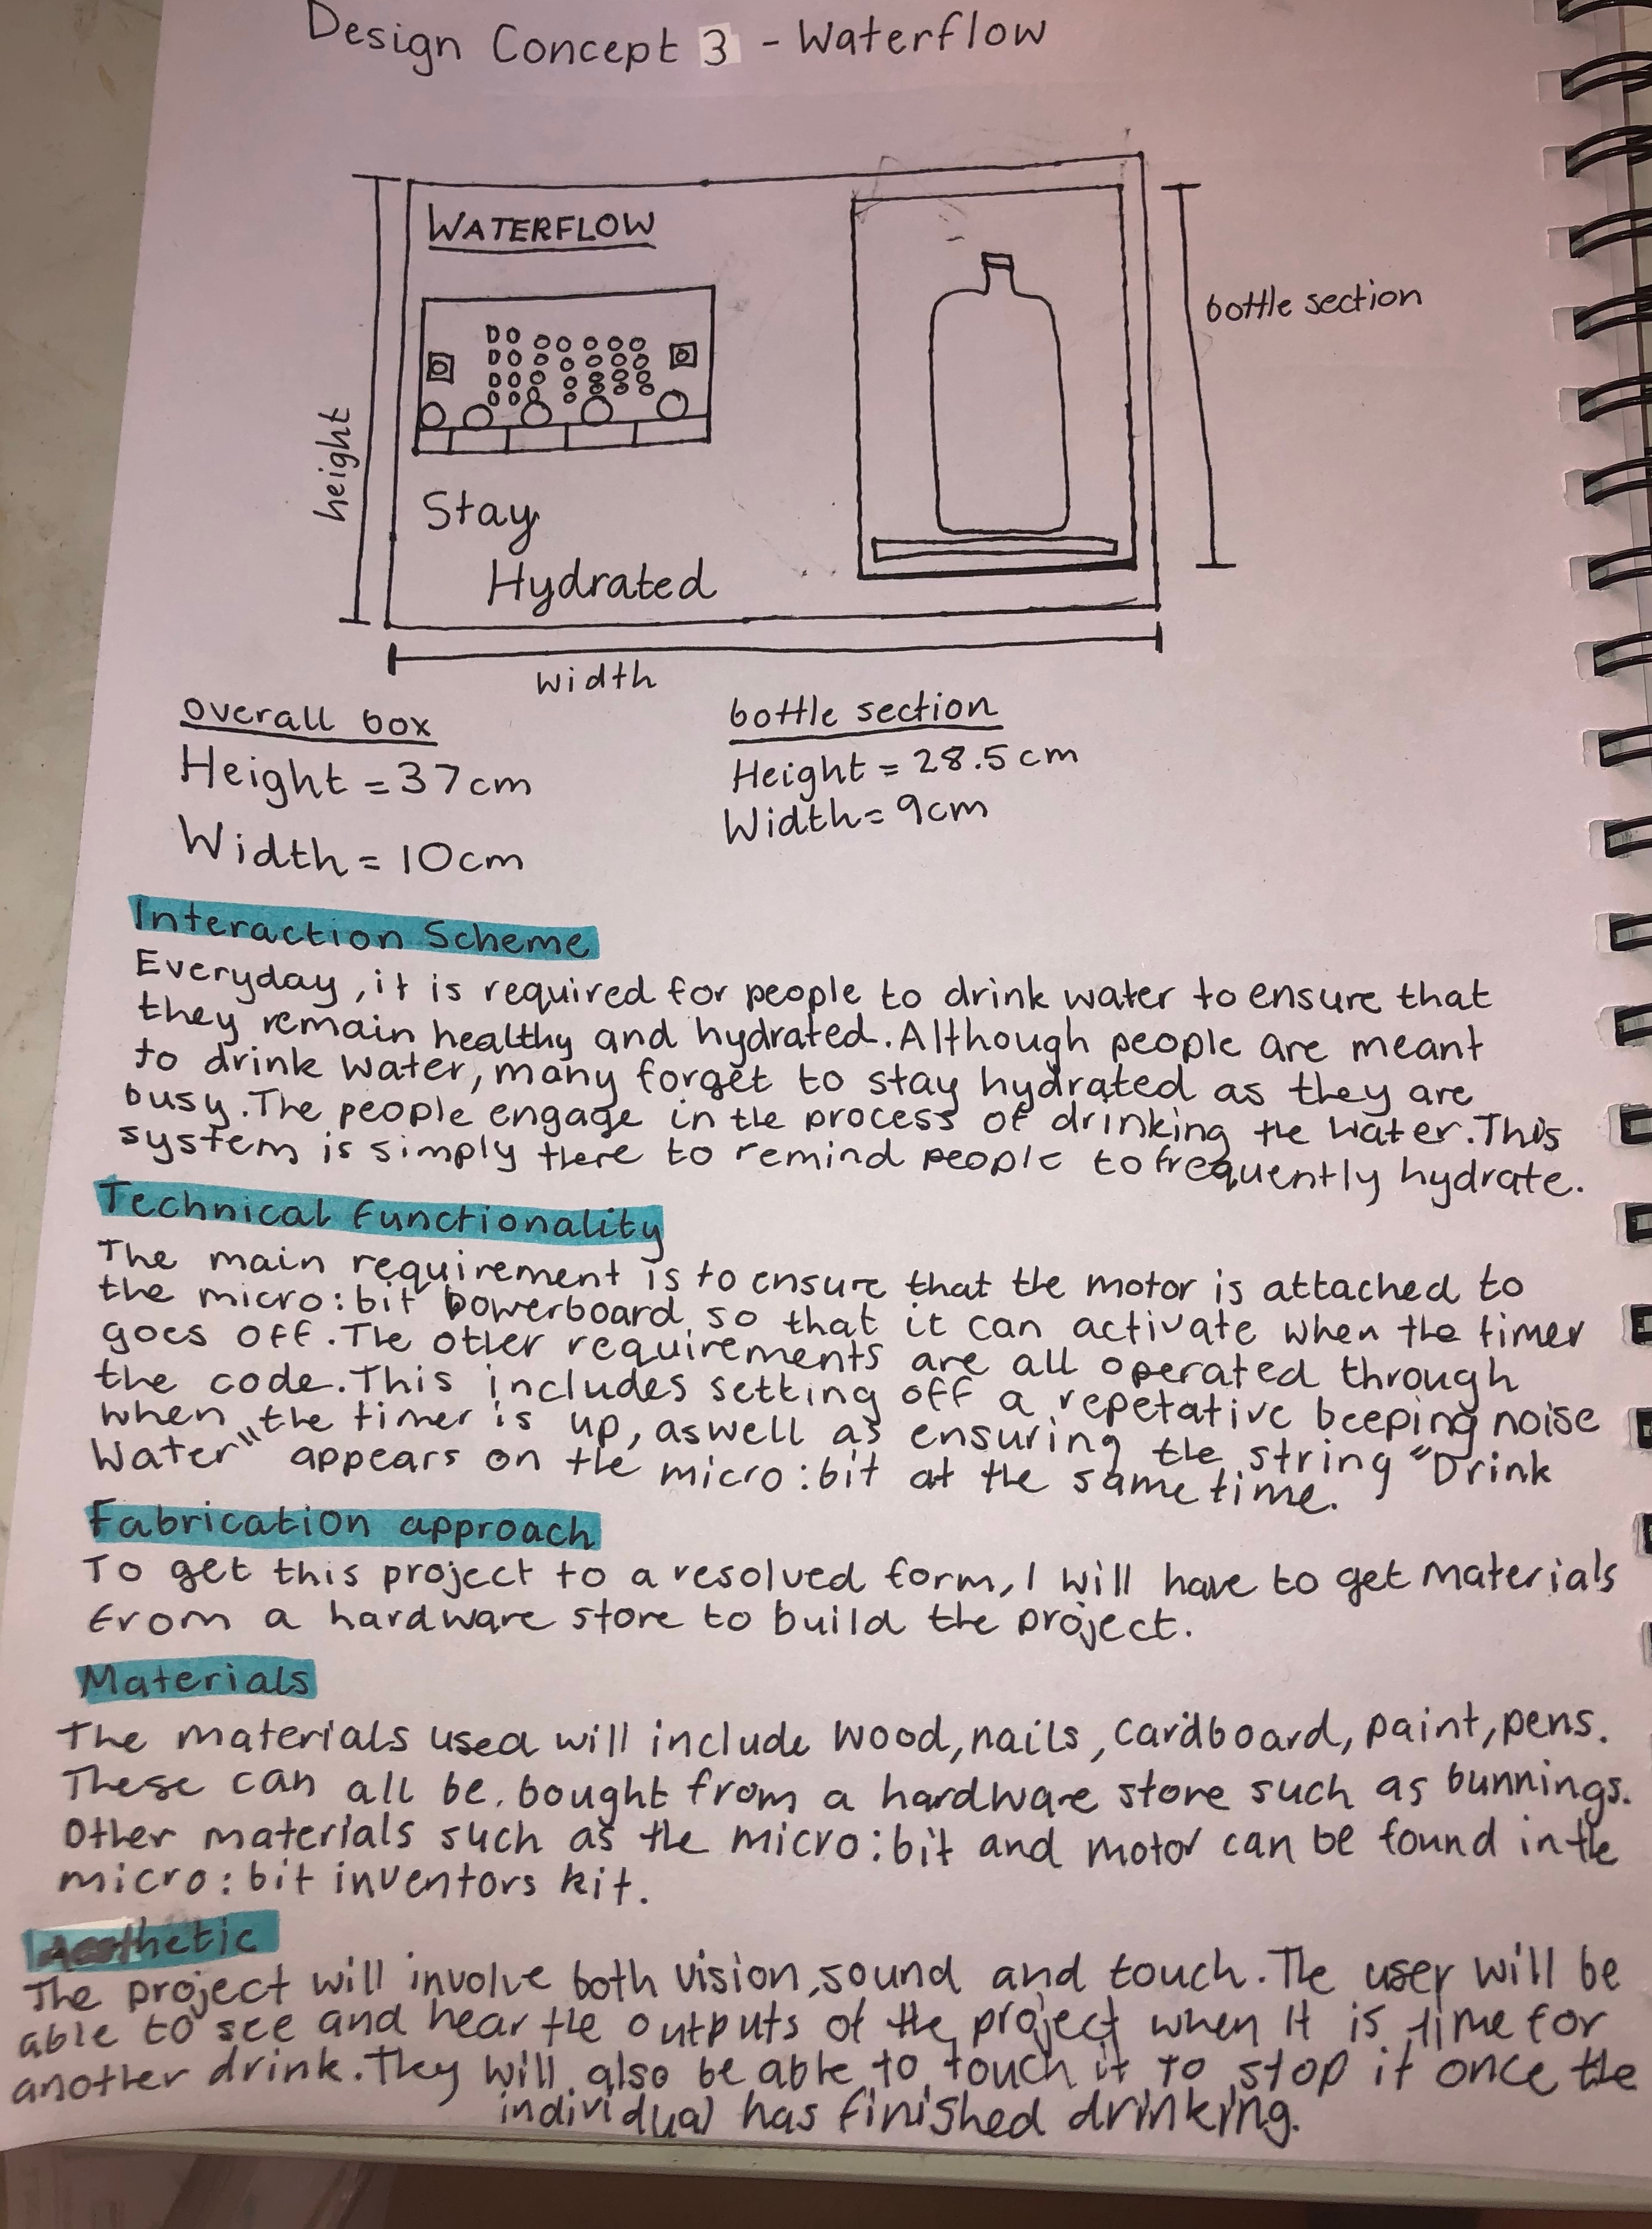 Design Concept 3 - Waterflow
WATERFLOW
bottle section
height
Stay
Hydrated
width
overall box
Height = 37cm
Width = 10cm
bottle section
Height = 28.5cm
Width = 9cm
Interaction Scheme
Everyday, it is required for people to drink water to ensure that
they remain healthy and hydrated. Although people are meant
to drink water, many forget to stay hydrated as they are
busy. The people engage in the process of drinking the water. This
system is simply there to remind people to frequently hydrate.
Technical functionality
The main requirement is to ensure that the motor is attached to
the micro:bit powerboard so that it can activate when the timer
goes off. The other requirements are all operated through
the code. This includes setting off a repetative beeping noise
when the timer is up, aswell as ensuring the string "Drink
Water" appears on the micro:bit at the same time.
Fabrication approach
To get this project to a resolved form, I will have to get materials
from a hardware store to build the project.
Materials
The materials used will include wood, nails, cardboard, paint, pens.
These can all be bought from a hardware store such as bunnings.
Other materials such as the micro:bit and motor can be found in the
micro:bit inventors kit.
Aesthetic
The project will involve both vision, sound and touch. The user will be
able to see and hear the outputs of the project when it is time for
another drink. They will also be able to touch it to stop it once the
individual has finished drinking.